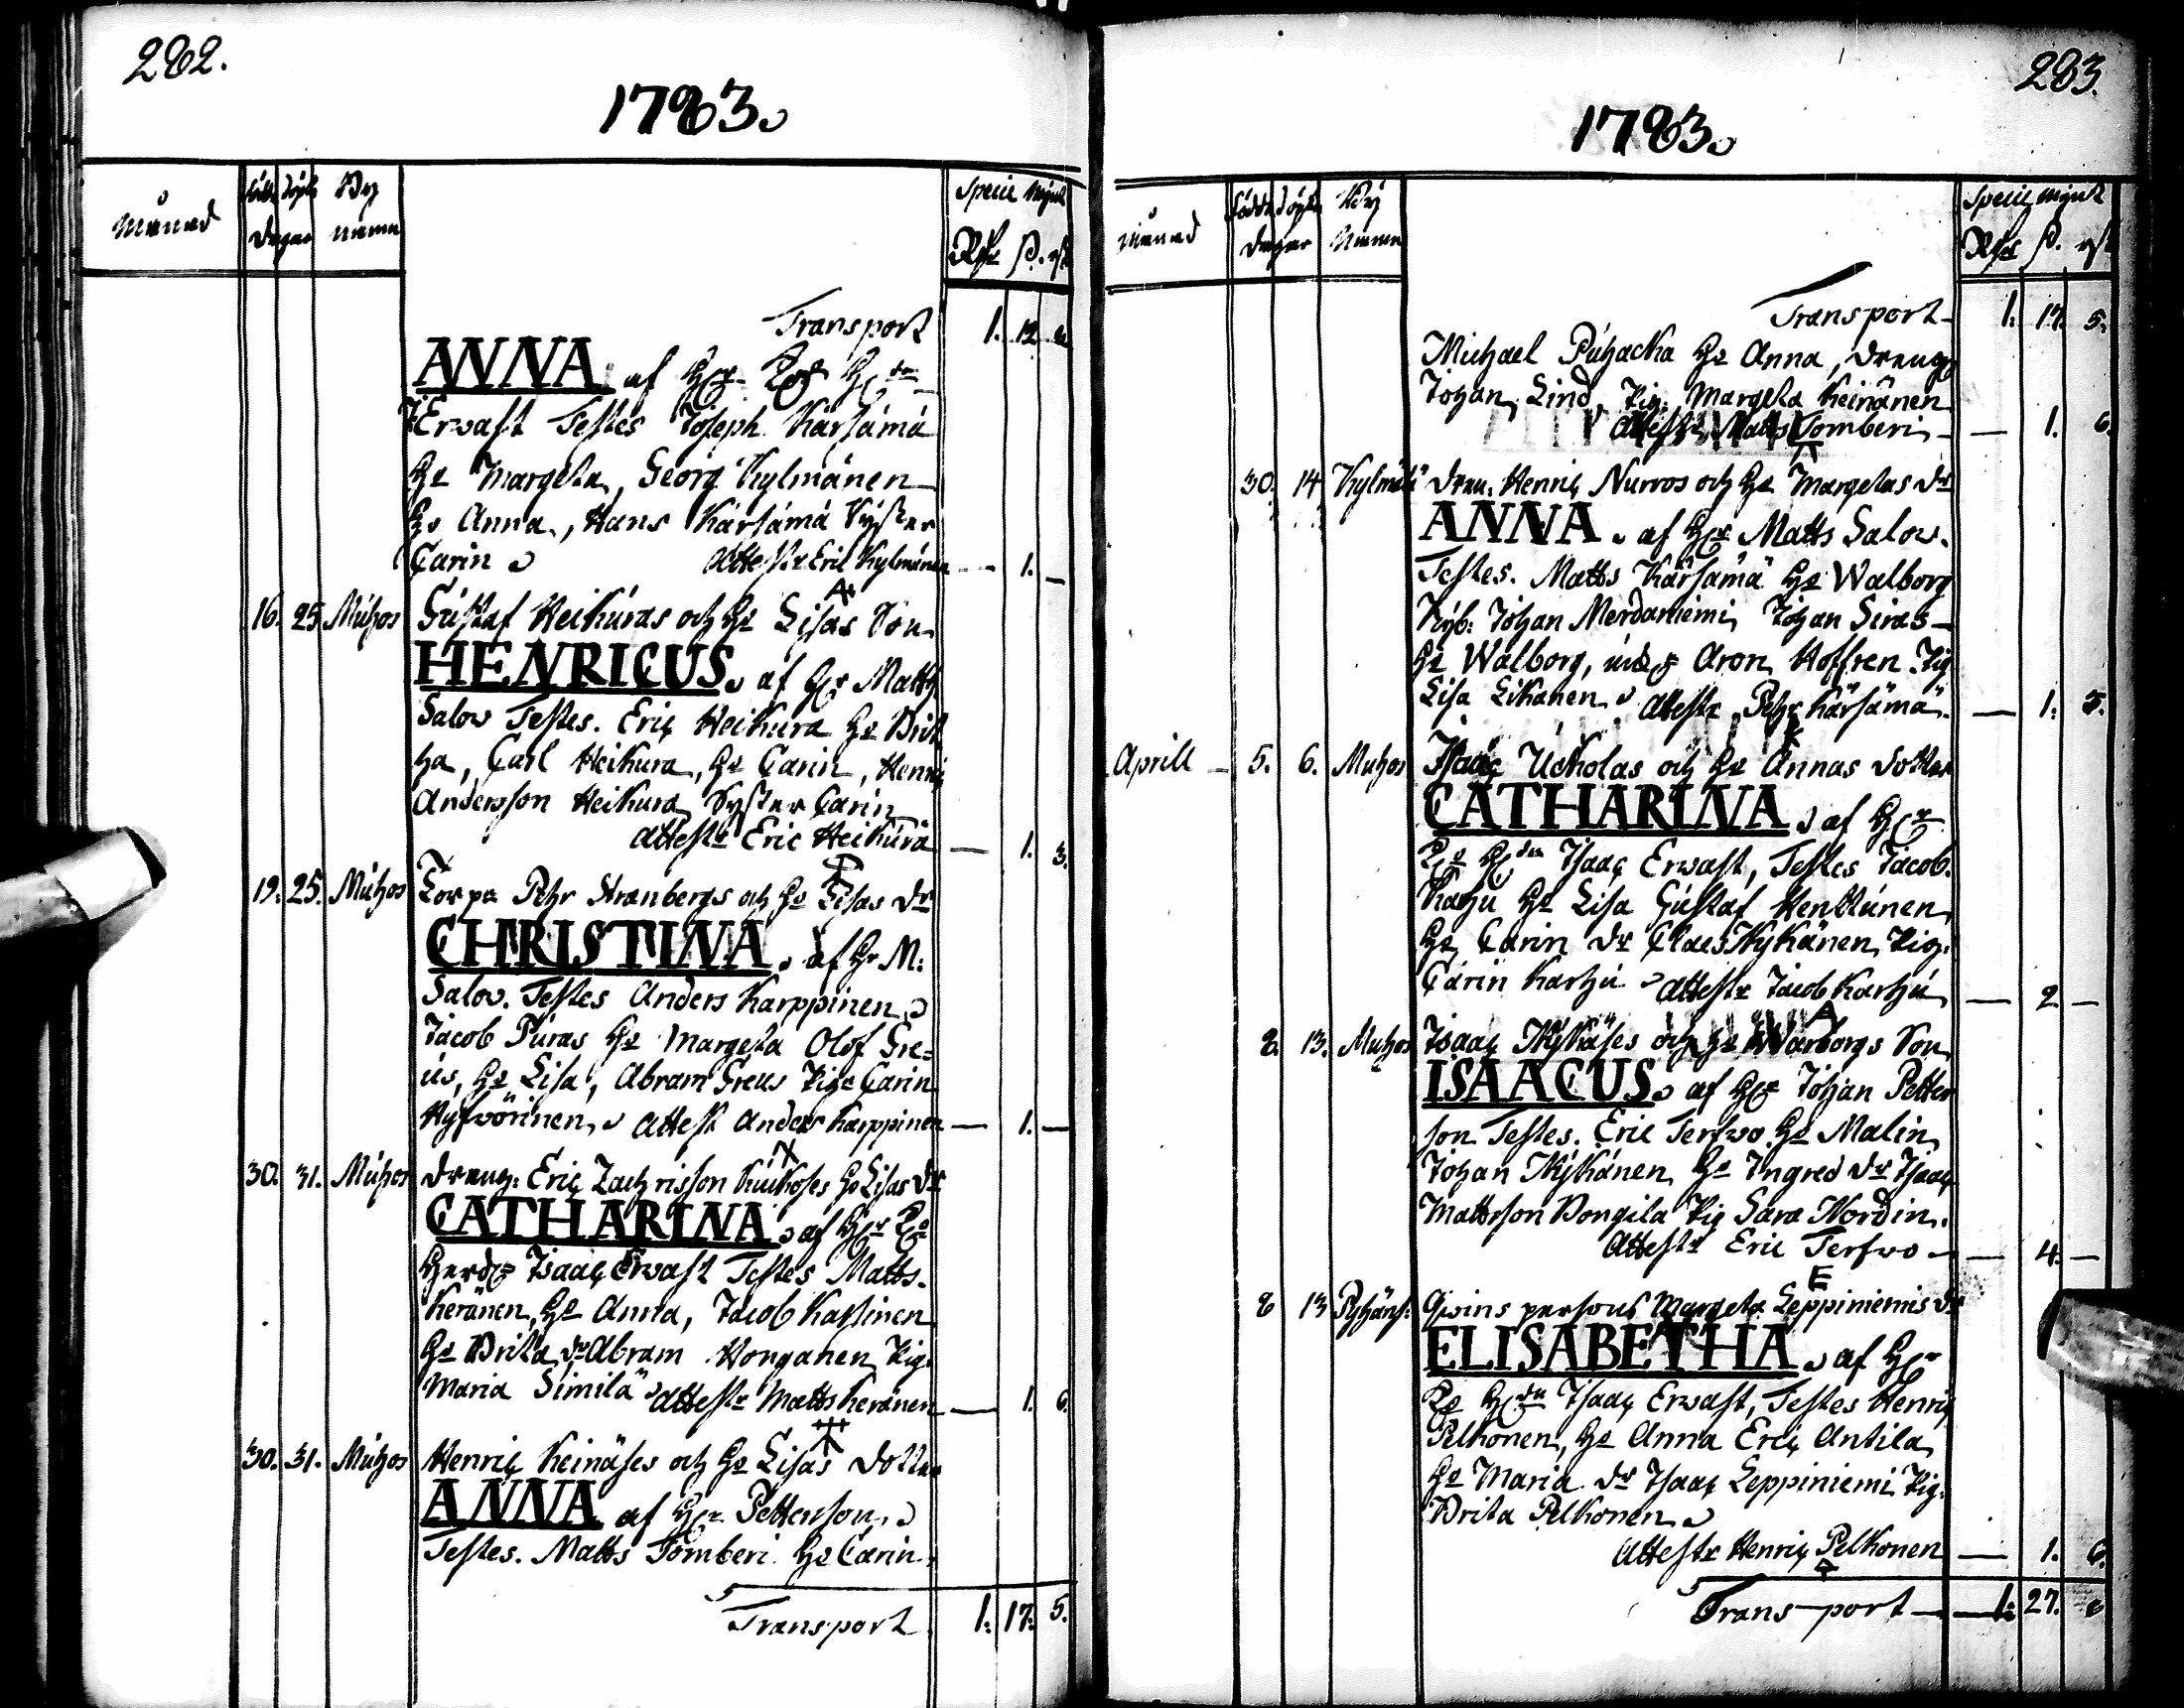 282.
1783.
Månad
född döpt
Dagar
By
namn
Specie mynt
Rdr ß. rst
Transport 1. 12
ANNA. af Hr
Erwast Testes Joseph Kärsämä
Hu Margeta, Georg Kylmänen
Hu Anna, Hans Kärsämä Syster
Carin Attestr Eric Kylmänen — 1. —
16. 25 Muhos Gustaf Heikuras och Hu Lisas Son
HENRICUS. af Hr Matth
Salov Testes. Eric Heikura Hu Brit
ha, Carl Heikura, Hu Carin, Henric
Andersson Heikura Syster Carin
Attestr Eric Heikura — 1. 3.
19. 25. Muhos Torpa Pehr Stranbergs och Hu Lisas dr
CHRISTINA. af Hr M:
Salov. Testes Anders Karppinen
Jacob Puras Hu Margeta Olof Gre=
us, Hu Lisa, Abram Greus Piga Carin
Hyfvörinen. Attest Anders Karppinen — 1. —
30. 31. Muhos Dreng: Eric Zachrisson Kuikoses Hu Lisas dr
CATHARINA. af Hr
Isaac Erwast Testes Matts
Keränen, Hu Anna, Jacob Kassinen
Hu Brita, dr Abram Honganen Pig.
Maria Similä Attestr Matts Keränen — 1. 6.
30. 31. Muhos Henric Keinäses och Hu Lisas dotter
ANNA af Hr Petterson.
Testes. Matts Tomberi Hu Carin.
Transport 1. 17. 5.
283.
1783.
Månad
född döpt
Dagar
By
Namn
Specie mynt
Rdr ß. rst
Transport 1. 17. 5.
Michael Puhacka Hu Anna, Dreng
Johan Lind, Pig. Margeta Keinänen
Attestr Matts Tomberi — 1. 6.
30. 14 Kylmälä Dren. Henric Nurvos och Hu Margetas dr
ANNA. af Hr Matts Salov.
Testes. Matts Kärsämä Hu Walborg
Nyb: Johan Merdaniemi Johan Siras
Hu Walborg, Aron Hoffren Pig
Lisa Likanen. Attestr Pehr Kärsämä. — 1.
Aprill 5. 6. Muhos Isaac Uckolas och Hu Annas dotter
CATHARINA. af Hr
Isaac Erwast, Testes Jacob
Karhu Hu Lisa Gustaf Henttunen
Hu Carin dr Claes Kykänen, Pig:
Carin Karhu Attestr Jacob Karhu — 2. —
8. 13. Muhos Isaac Kykäses och Hu Warborgs Son
ISAACUS. af Hr Johan Petter
son Testes. Eric Terfwo Hu Malin
Johan Kykänen Hu Ingred dr Isaac
Mattsson Pongila Pig Sara Nordin.
Attestr Eric Terfwo — 4. —
8 13 Pyhäns: Qwins persons Margeta Leppiniemis dr
ELISABETHA. af Hr
Isaac Erwast, Testes Henric
Pelkonen, Hu Anna Eric Antila
Hu Maria dr Isaac Leppiniemi Pig.
Brita Pelkonen
Attestr Henric Pelkonen — 1. 6.
Transport — 1. 27.